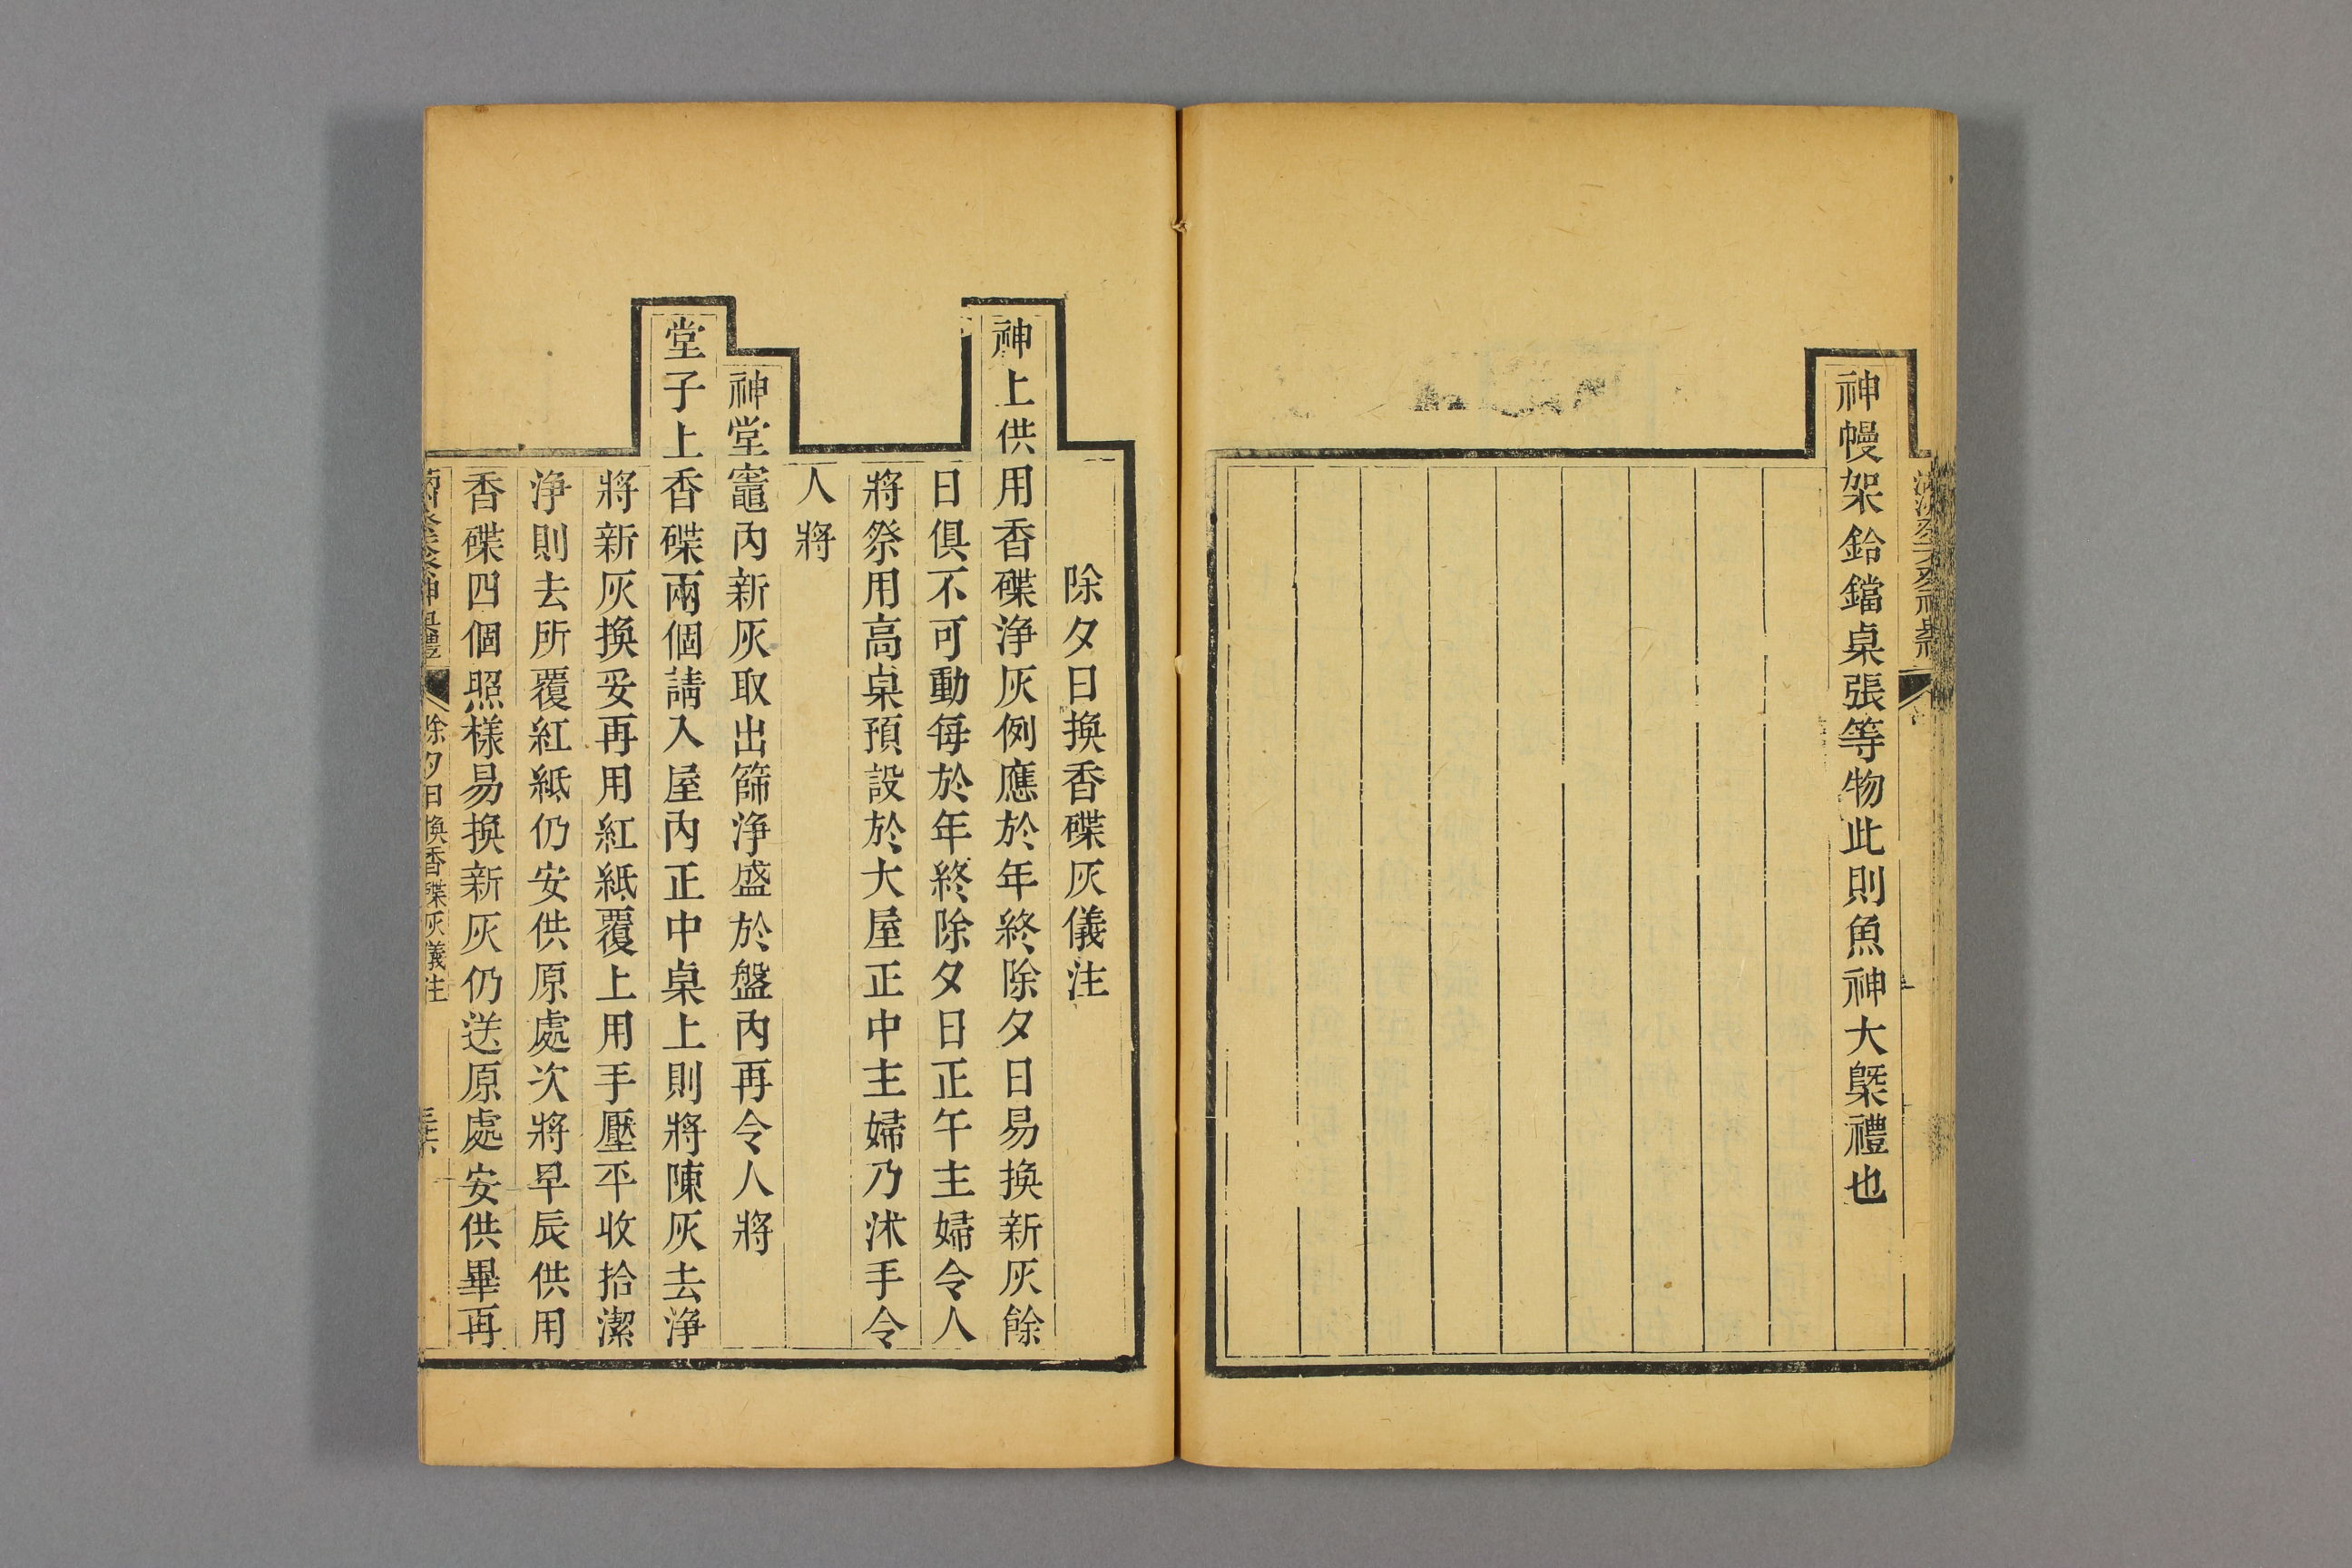 神幔架鈴鐺桌張等物此則魚神大槩禮也
除夕日換香碟灰儀注
神上供用香碟净灰例應於年終除夕日易換新灰餘
日俱不可動每於年終除夕日正午主婦令人
將祭用高桌預設於大屋正中主婦乃沐手令
人將
神堂竈內新灰取出篩净盛於盤內再令人將
堂子上香碟兩個請入屋內正中桌上則將陳灰去净
將新灰換妥再用紅紙覆上用手壓平收拾潔
净則去所覆紅紙仍安供原處次將早辰供用
香碟四個照樣易換新灰仍送原處安供畢再
除夕日換香碟灰儀注